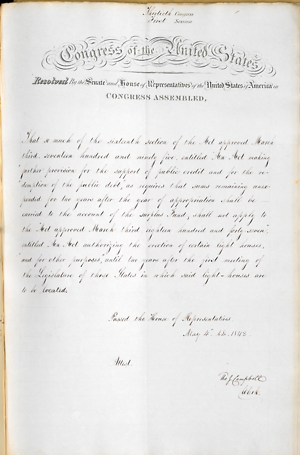 Thirtieth Congress
First Session
Congress of the United States
Resolved By the Senate and House of Representatives of the United States of America in
CONGRESS ASSEMBLED,
That so much of the sixteenth section of the Act approved March
third, seventeen hundred and ninety five, entitled An Act making
further provision for the support of public credit and for the re-
demption of the public debt, as requires that sums remaining unex-
pended for two years after the year of appropriation shall be
carried to the account of the surplus fund, shall not apply to
the Act approved March third eighteen hundred and forty seven,
entitled An Act authorizing the erection of certain light houses,
and for other purposes, until two years after the first meeting of
the Legislature of those States in which said light-houses are
to be located.
Passed the House of Representatives,
May 1848
Attest.
Campbell
Clerk